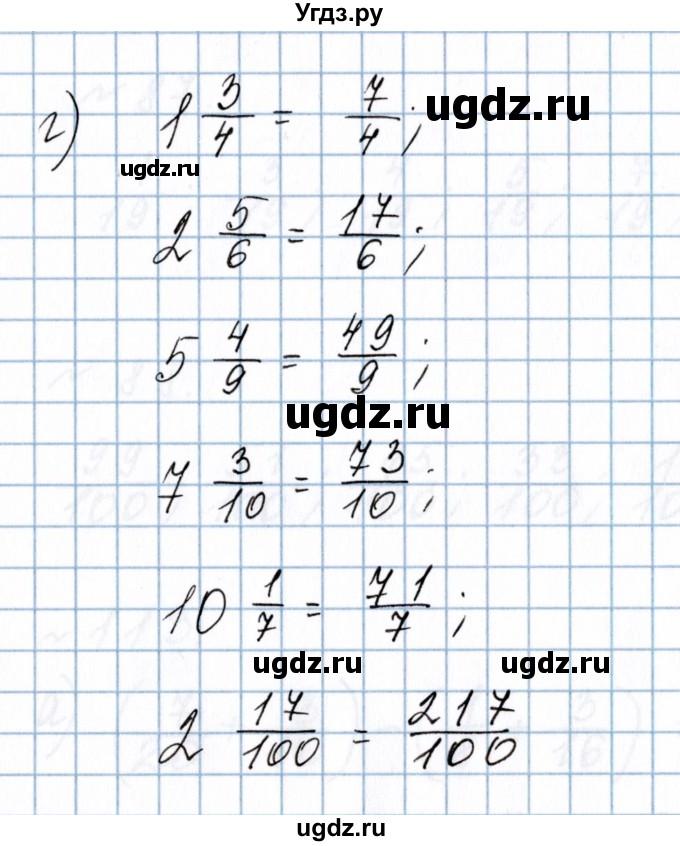 Угдз.ру
г) 1 3/4 = 7/4;
ugdz.ru
ugdz.ru
2 5/6 = 17/6;
5 4/9 = 49/9;
ugdz.ru
7 3/10 = 73/10;
10 1/7 = 71/7;
ugdz.ru
ugdz.ru
2 17/100 = 217/100
ugdz.ru